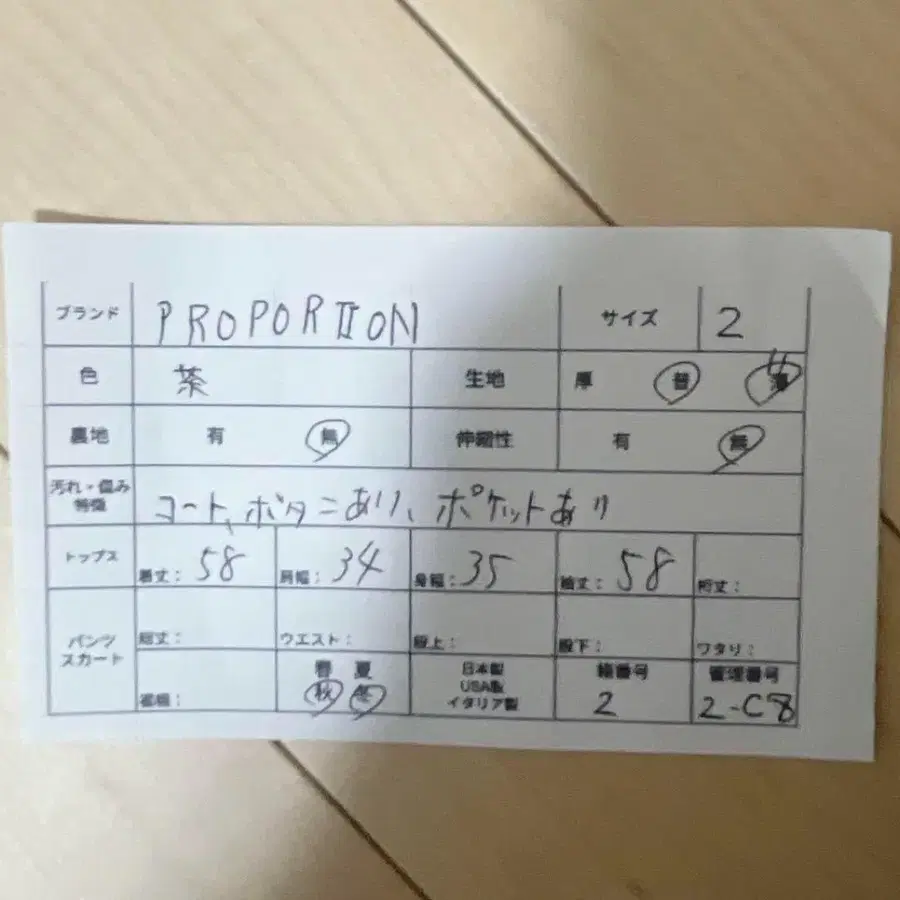 ブランド PROPORTION サイズ 2
色 茶 生地 厚 普 薄
裏地 有 無 伸縮性 有 無
汚れ・傷み
特徴 コート、ボタンあり、ポケットあり
トップス 着丈: 58 肩幅: 34 身幅: 35 袖丈: 58 裄丈:
パンツ
スカート 総丈: ウエスト: 股上: 股下: ワタリ:
裾幅: 春 夏 秋 冬 日本製 USA製 イタリア製 箱番号 2 管理番号 2-C8